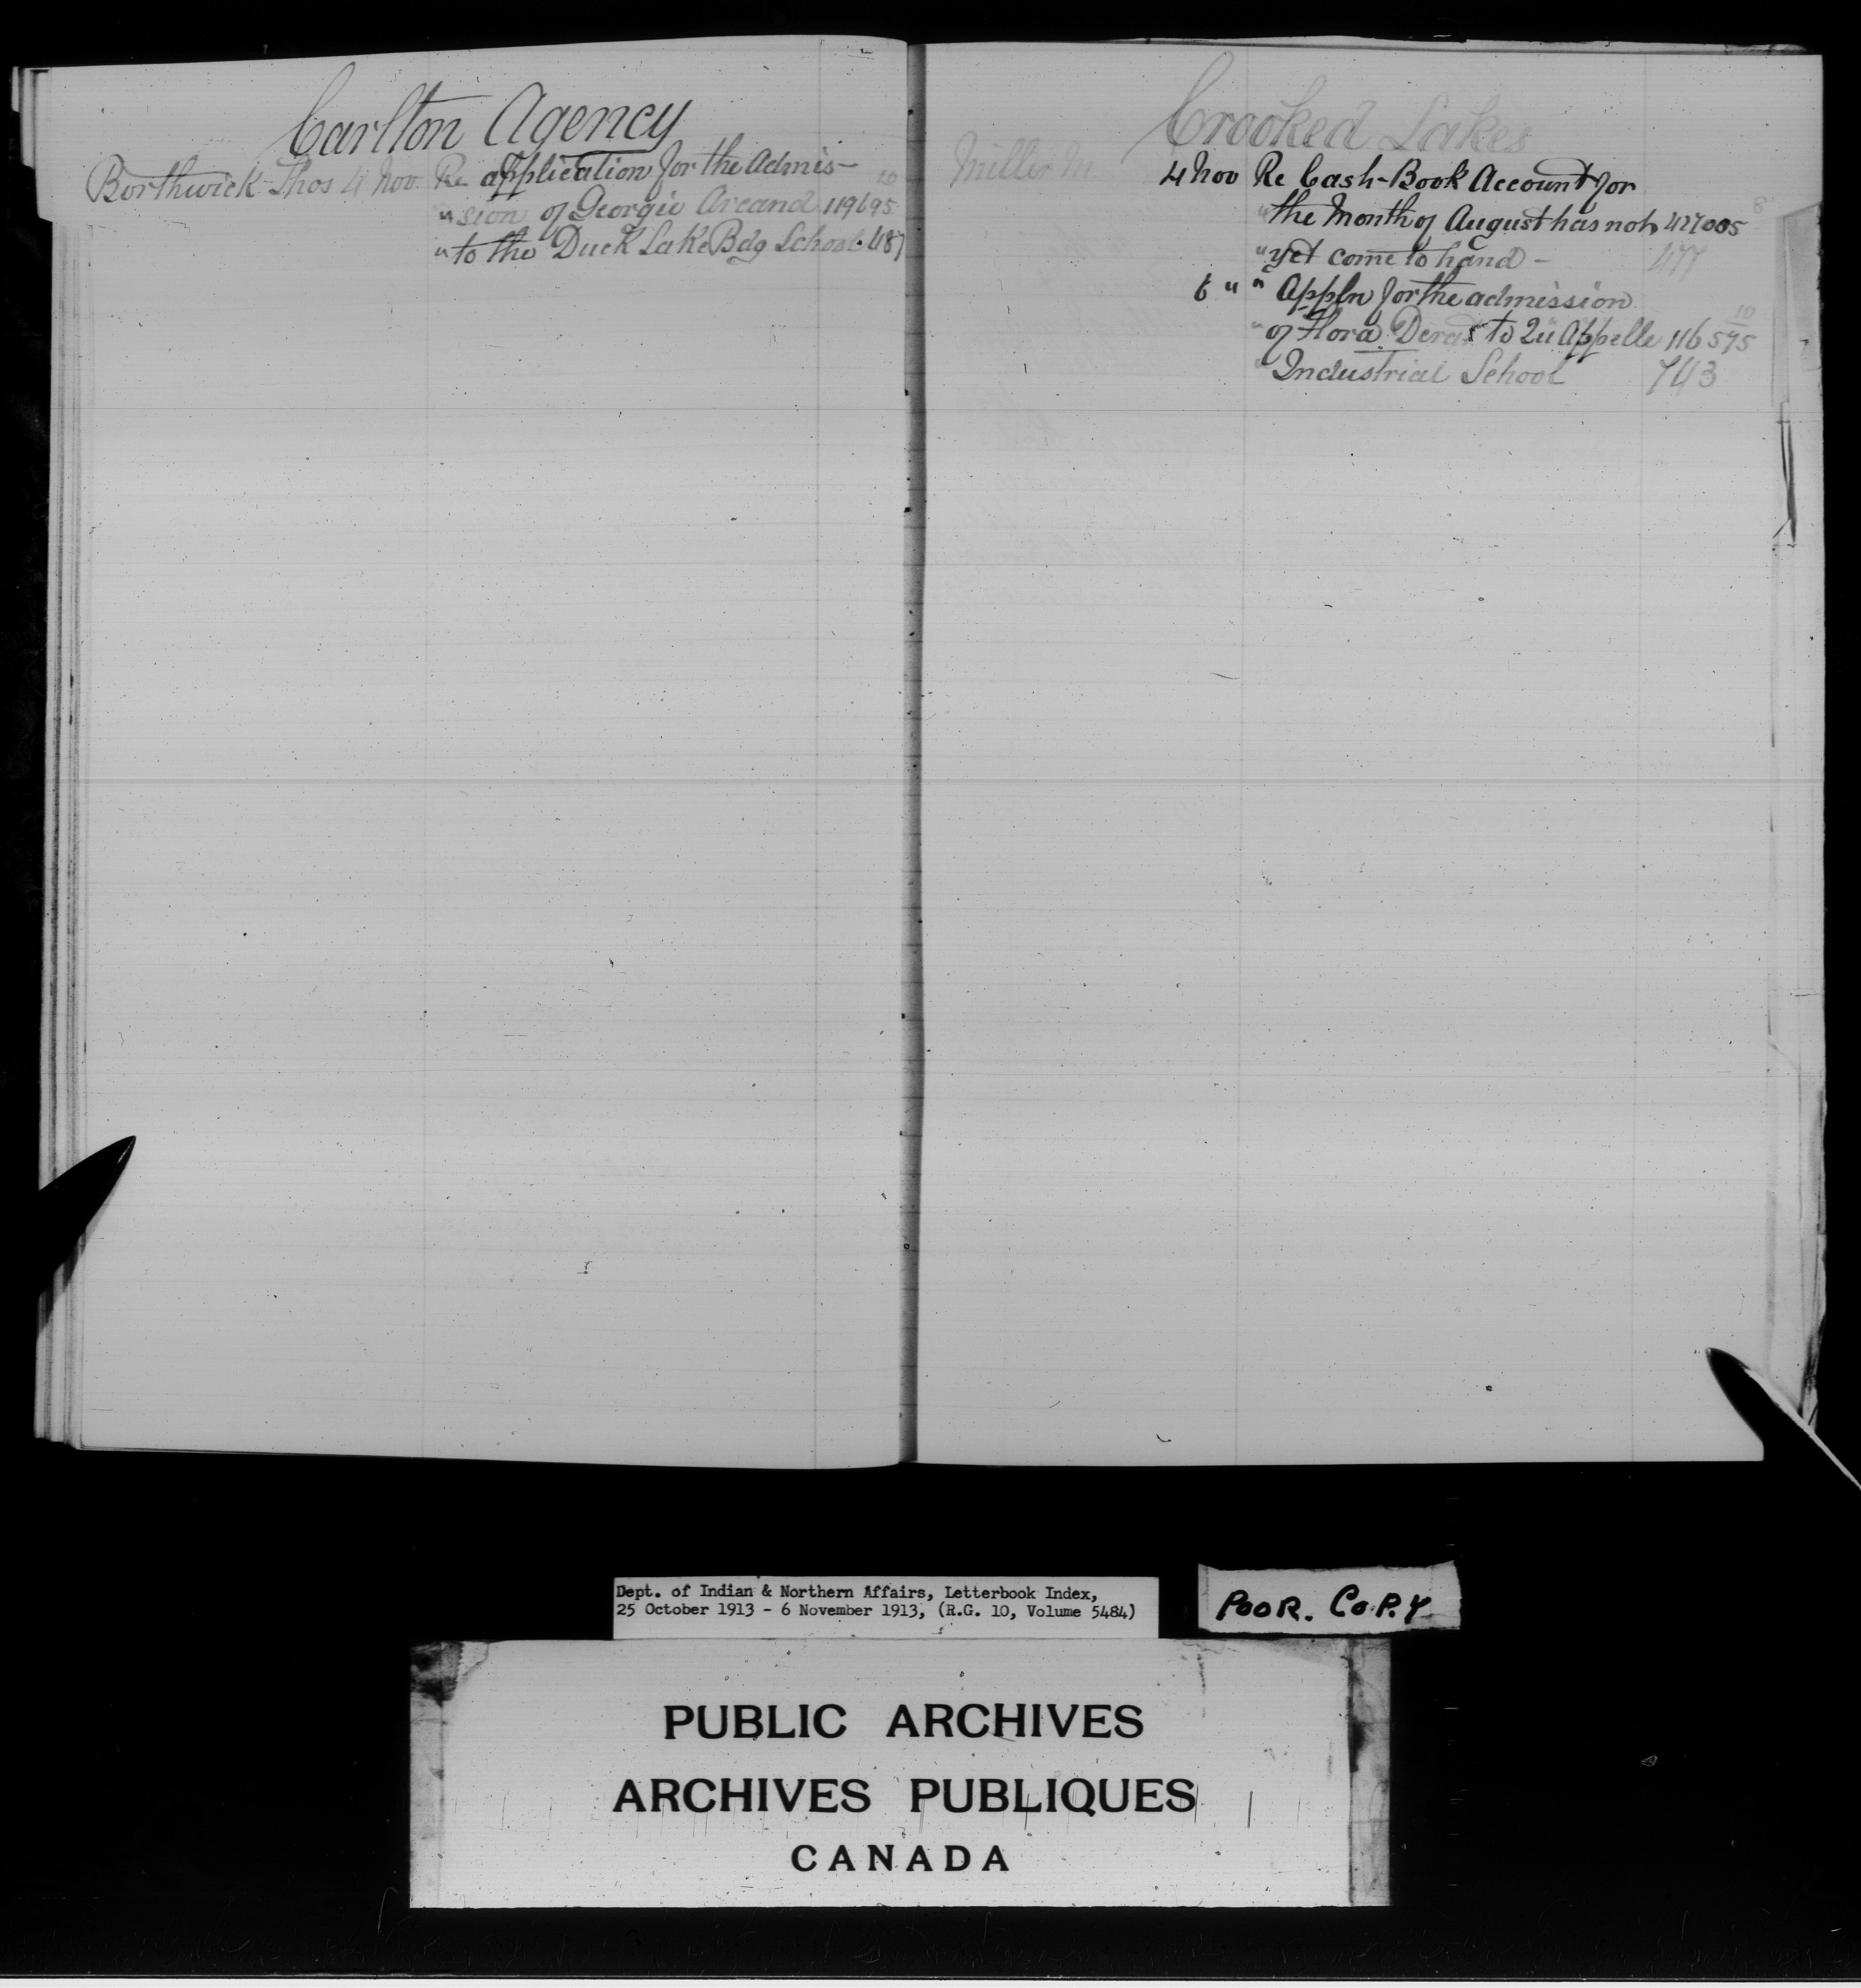 Carlton Agency
Borthwick Thos 4 Nov. Re application for the Admis- 10
" sion of Georgie Arcand 119695
" to the Duck Lake Bdg School. 487
Crooked Lakes
Miller M 4 Nov Re Cash-Book Account for
" the Month of August has not 427005 8
" yet come to hand - 477
6 " " Appln for the admission 10
" of Flora to Qu Appelle 116575
" Industrial School 743
Dept. of Indian & Northern Affairs, Letterbook Index,
25 October 1913 - 6 November 1913, (R.G. 10, Volume 5484)
POOR. COPY
PUBLIC ARCHIVES
ARCHIVES PUBLIQUES
CANADA